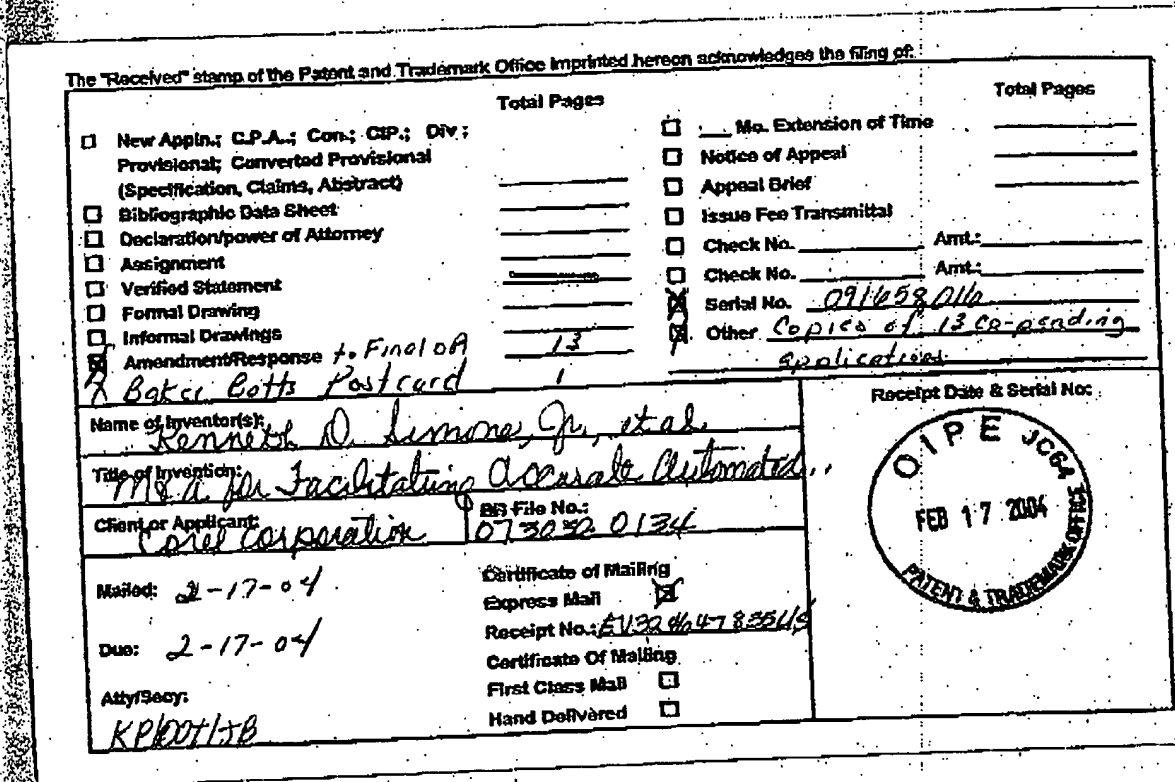 The "Received" stamp of the Patent and Trademark Office imprinted hereon acknowledges the filing of:
Total Pages
New Appln.; C.P.A.; Con.; CIP.; Div;
Provisional; Converted Provisional
(Specification, Claims, Abstract)
Bibliographic Data Sheet
Declaration/power of Attorney
Assignment
Verified Statement
Formal Drawing
Informal Drawings
Amendment/Response to Final OA 13
Baker Botts Postcard 1
Total Pages
___ Mo. Extension of Time
Notice of Appeal
Appeal Brief
Issue Fee Transmittal
Check No. Amt.:
Check No. Amt.:
Serial No. 09/658,016
Other Copies of 13 co-pending
applications
Name of Inventor(s):
Kenneth D. Simone, Jr., et al.
Title of Invention:
M&A for Facilitating Accurate Automated..
Client or Applicant:
Corel Corporation
BB File No.:
073020 0134
Mailed: 2-17-04
Due: 2-17-04
Atty/Secy:
Certificate of Mailing
Express Mail
Receipt No.:
Certificate Of Mailing
First Class Mail
Hand Delivered
Receipt Date & Serial No:
OIPE JC64
FEB 17 2004
PATENT & TRADEMARK OFFICE